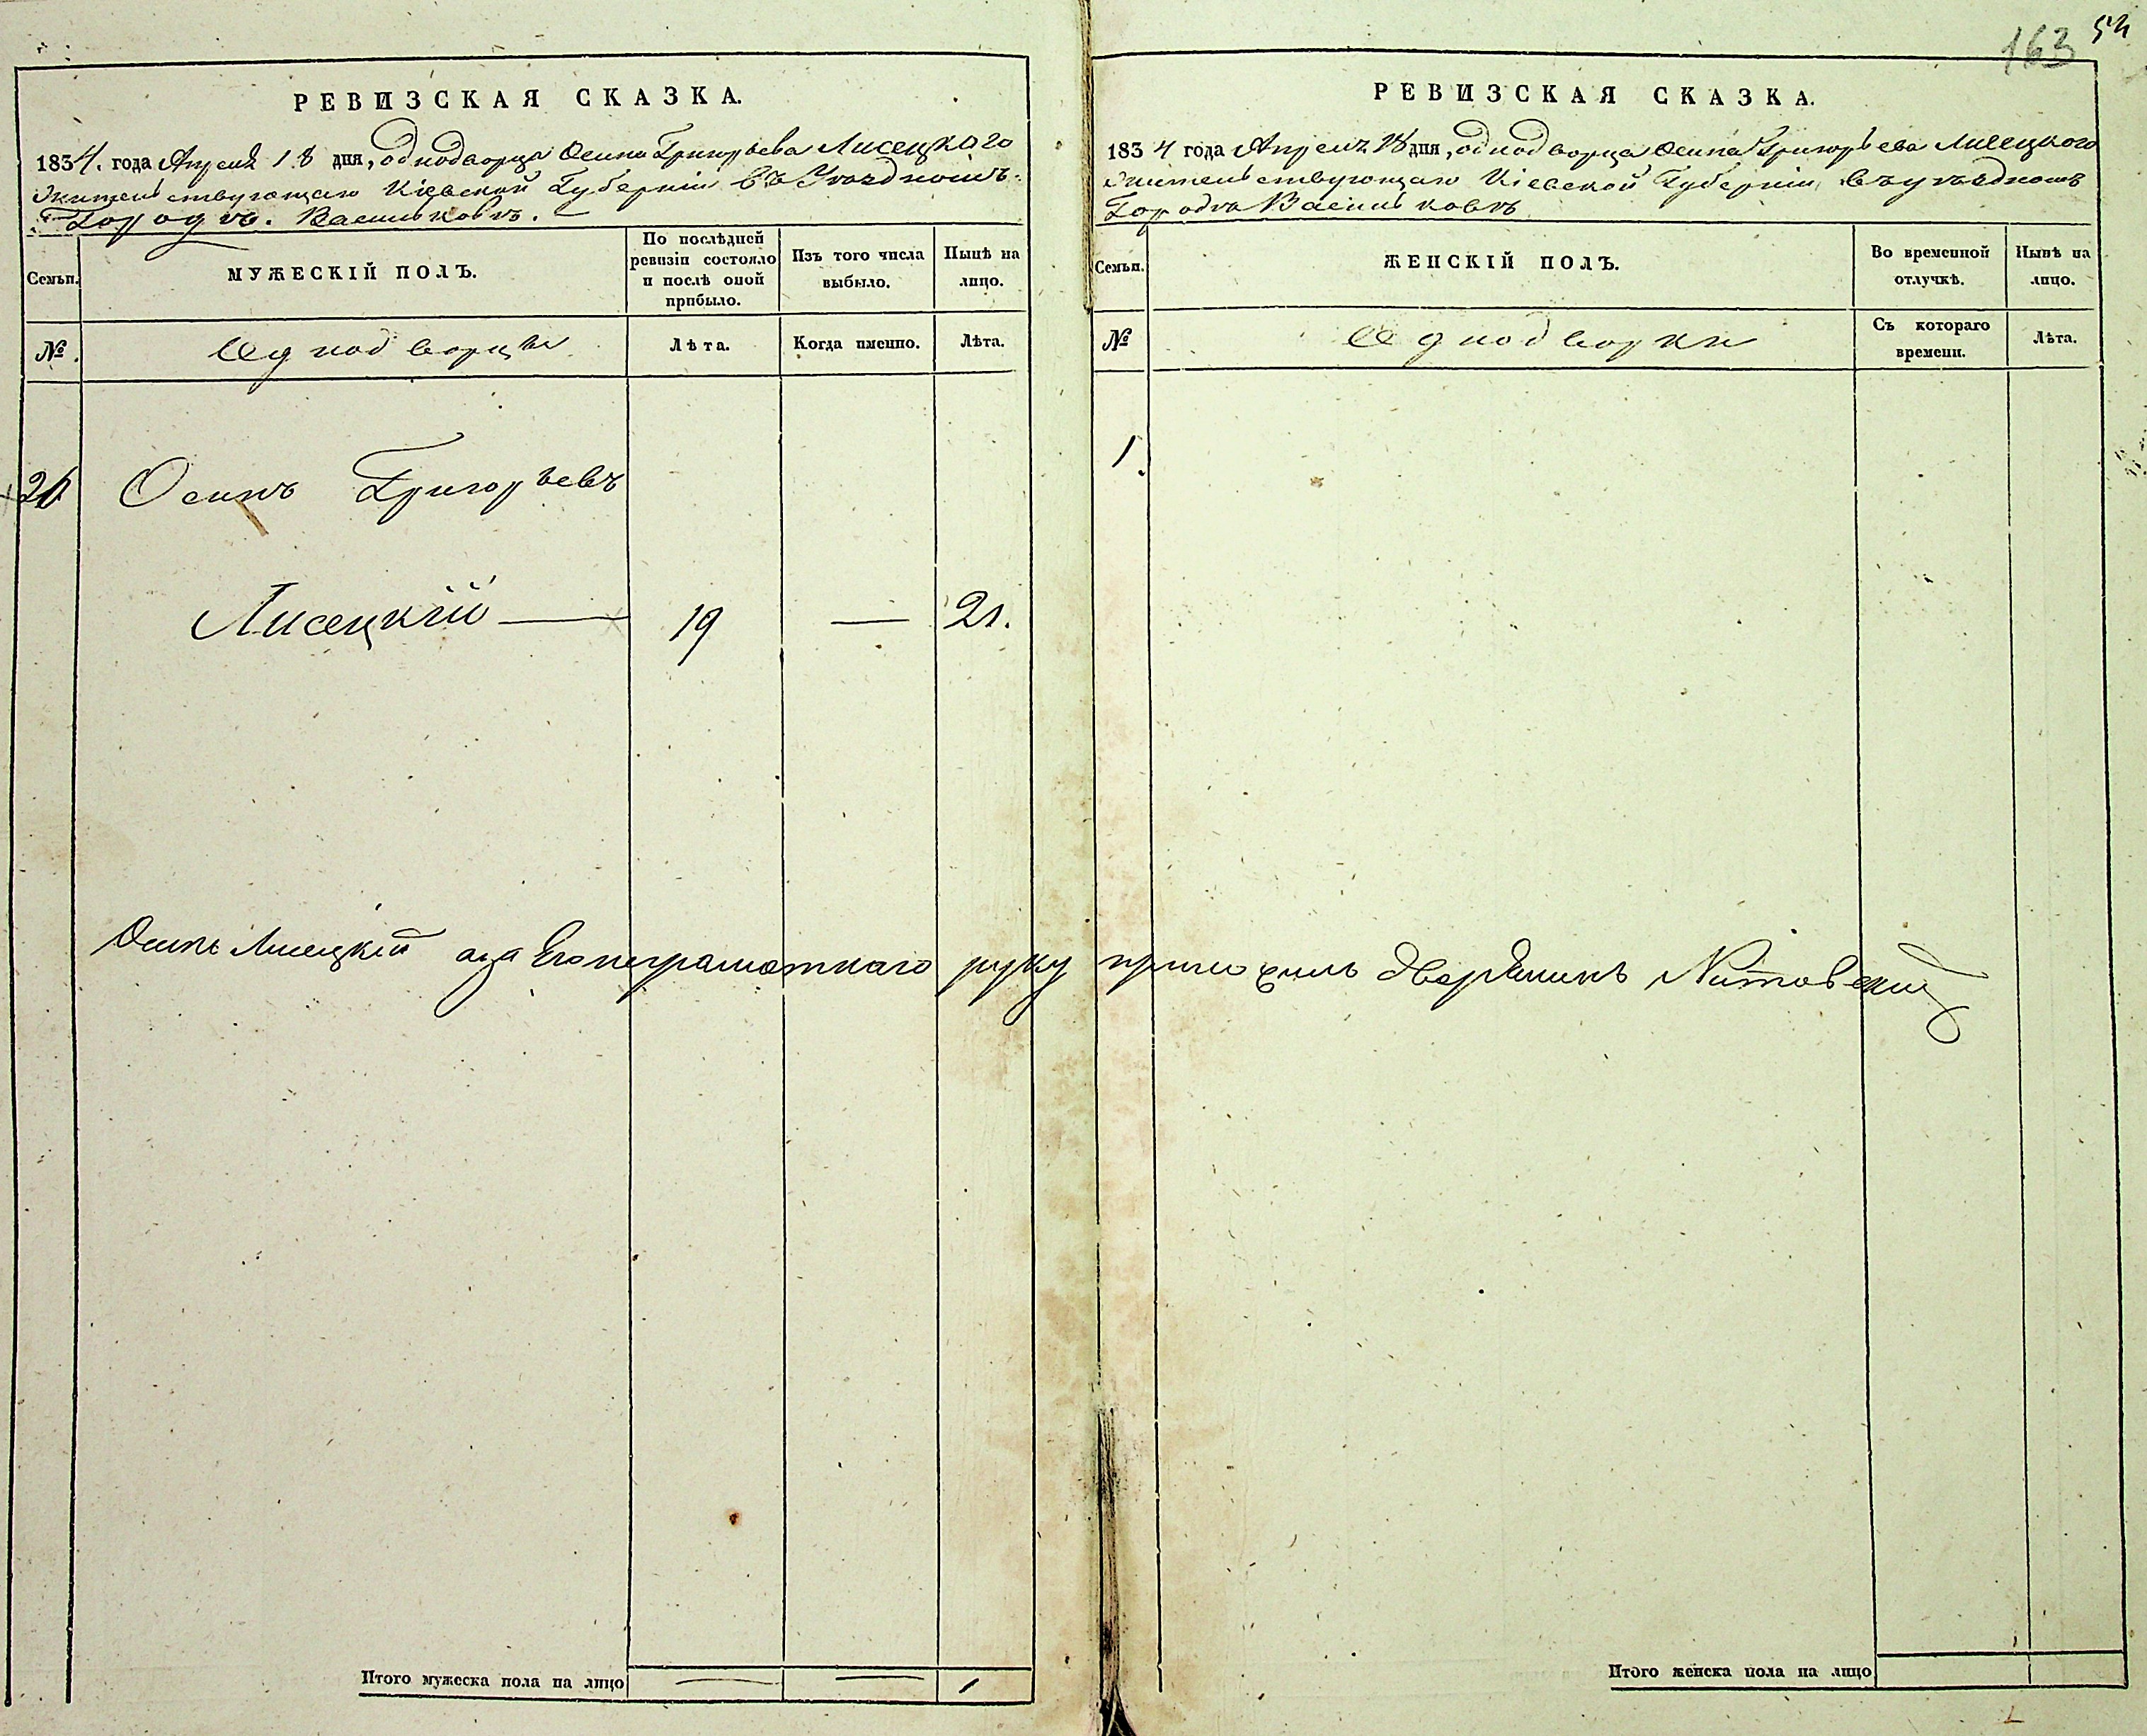 163 54
РЕВИЗСКАЯ СКАЗКА.
1834. года Апреля 18 дня, однодворца Осипа Григорьева Лисецкаго
жительствующаго Кіевской Губерніи въ Уездномъ
Городѣ. Васильковѣ.
Семьи.
МУЖЕСКІЙ ПОЛЪ.
По послѣдней ревизіи состояло и послѣ оной прибыло.
Изъ того числа выбыло.
Нынѣ на лицо.
№.
Однодворцы
Лѣта.
Когда именно.
Лѣта.
Осипъ Григорьевъ
Лисецкій — 19 — 21.
Осипъ Лисецкій а за Его неграмотнаго руку приложилъ дворянинъ
Итого мужеска пола на лицо — — 1
РЕВИЗСКАЯ СКАЗКА.
1834 года Апреля 18 дня, однодворца Осипа Григорьева Лисецкого
жительствующаго Кіевской Губерніи въ уѣздномъ
Городѣ Васильковѣ
Семьи.
ЖЕНСКІЙ ПОЛЪ.
Во временной отлучкѣ.
Нынѣ на лицо.
№
Однодворки
Съ котораго времени.
Лѣта.
1.
Итого женска пола на лицо